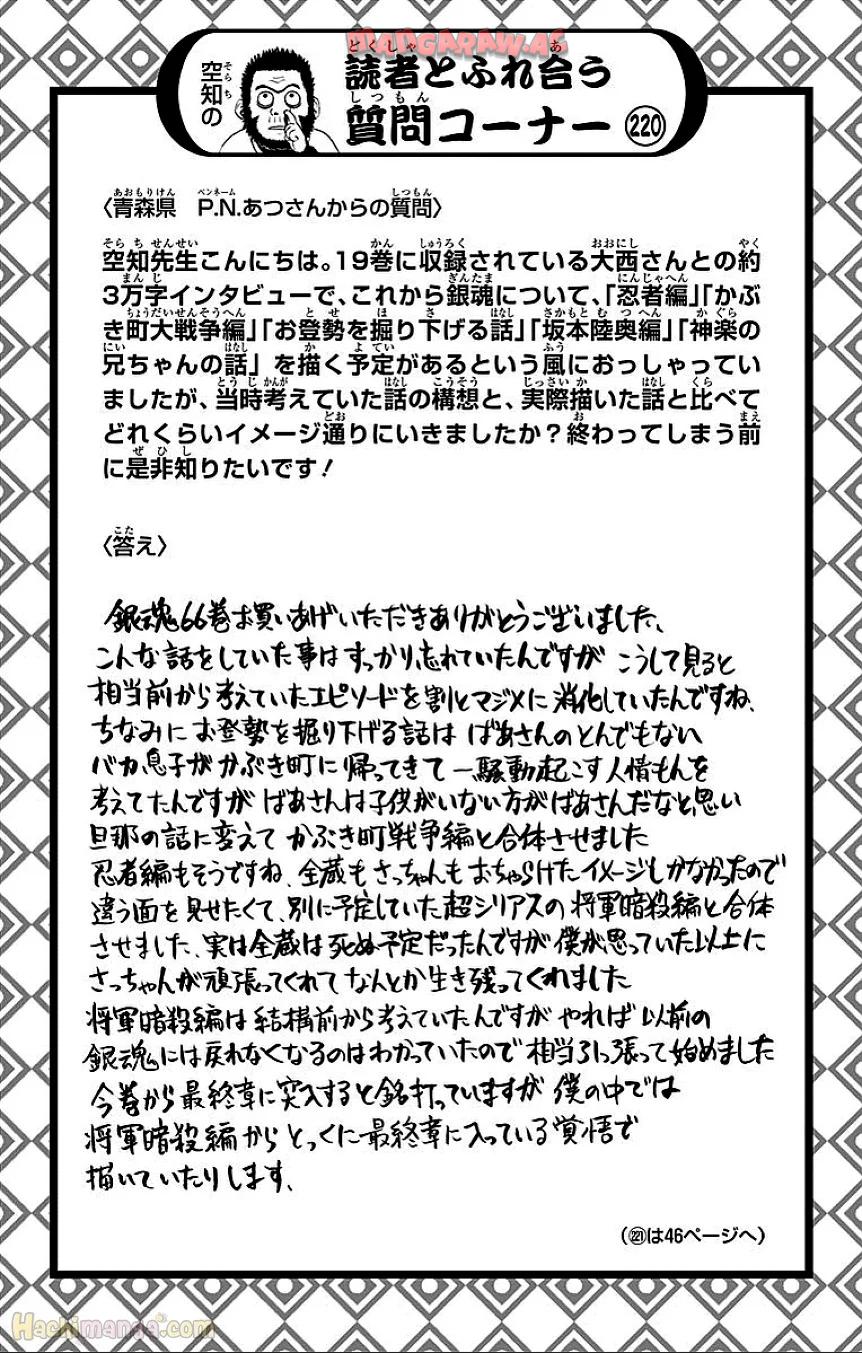 MANGARAW.AC
空知の
読者とふれ合う
質問コーナー 220
〈青森県 P.N.あつさんからの質問〉
空知先生こんにちは。19巻に収録されている大西さんとの約
3万字インタビューで、これから銀魂について、「忍者編」「かぶ
き町大戦争編」「お登勢を掘り下げる話」「坂本陸奥編」「神楽の
兄ちゃんの話」を描く予定があるという風におっしゃってい
ましたが、当時考えていた話の構想と、実際描いた話と比べて
どれくらいイメージ通りにいきましたか?終わってしまう前
に是非知りたいです!
〈答え〉
銀魂66巻お買いあげいただきありがとうございました、
こんな話をしていた事はすっかり忘れていたんですが こうして見ると
相当前から考えていたエピソードを割とマジメに消化していたんですね、
ちなみにお登勢を掘り下げる話は ばあさんのとんでもない
バカ息子がかぶき町に帰ってきて 一騒動起こす人情もんを
考えてたんですが ばあさんは子供がいない方がばあさんだなと思い
旦那の話に変えて かぶき町戦争編と合体させました
忍者編もそうですね、全蔵もさっちゃんもおちゃらけたイメージしかなかったので
違う面を見せたくて、別に予定していた超シリアスの将軍暗殺編と合体
させました、実は全蔵は死ぬ予定だったんですが 僕が思っていた以上に
さっちゃんが頑張ってくれて なんとか生き残ってくれました
将軍暗殺編は結構前から考えていたんですが やれば以前の
銀魂には戻れなくなるのはわかっていたので 相当引っ張って始めました
今巻から最終章に突入すると銘打っていますが 僕の中では
将軍暗殺編からとっくに最終章に入っている覚悟で
描いていたりします、
(221は46ページへ)
Hachimanga.com